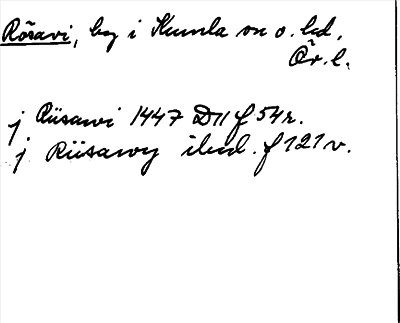 Råsavi, by i Kumla sn o. hd,
Ör. l.
j Riisawi 1447 D11 f 54r.
j Riisawy ibid. f 121 v.